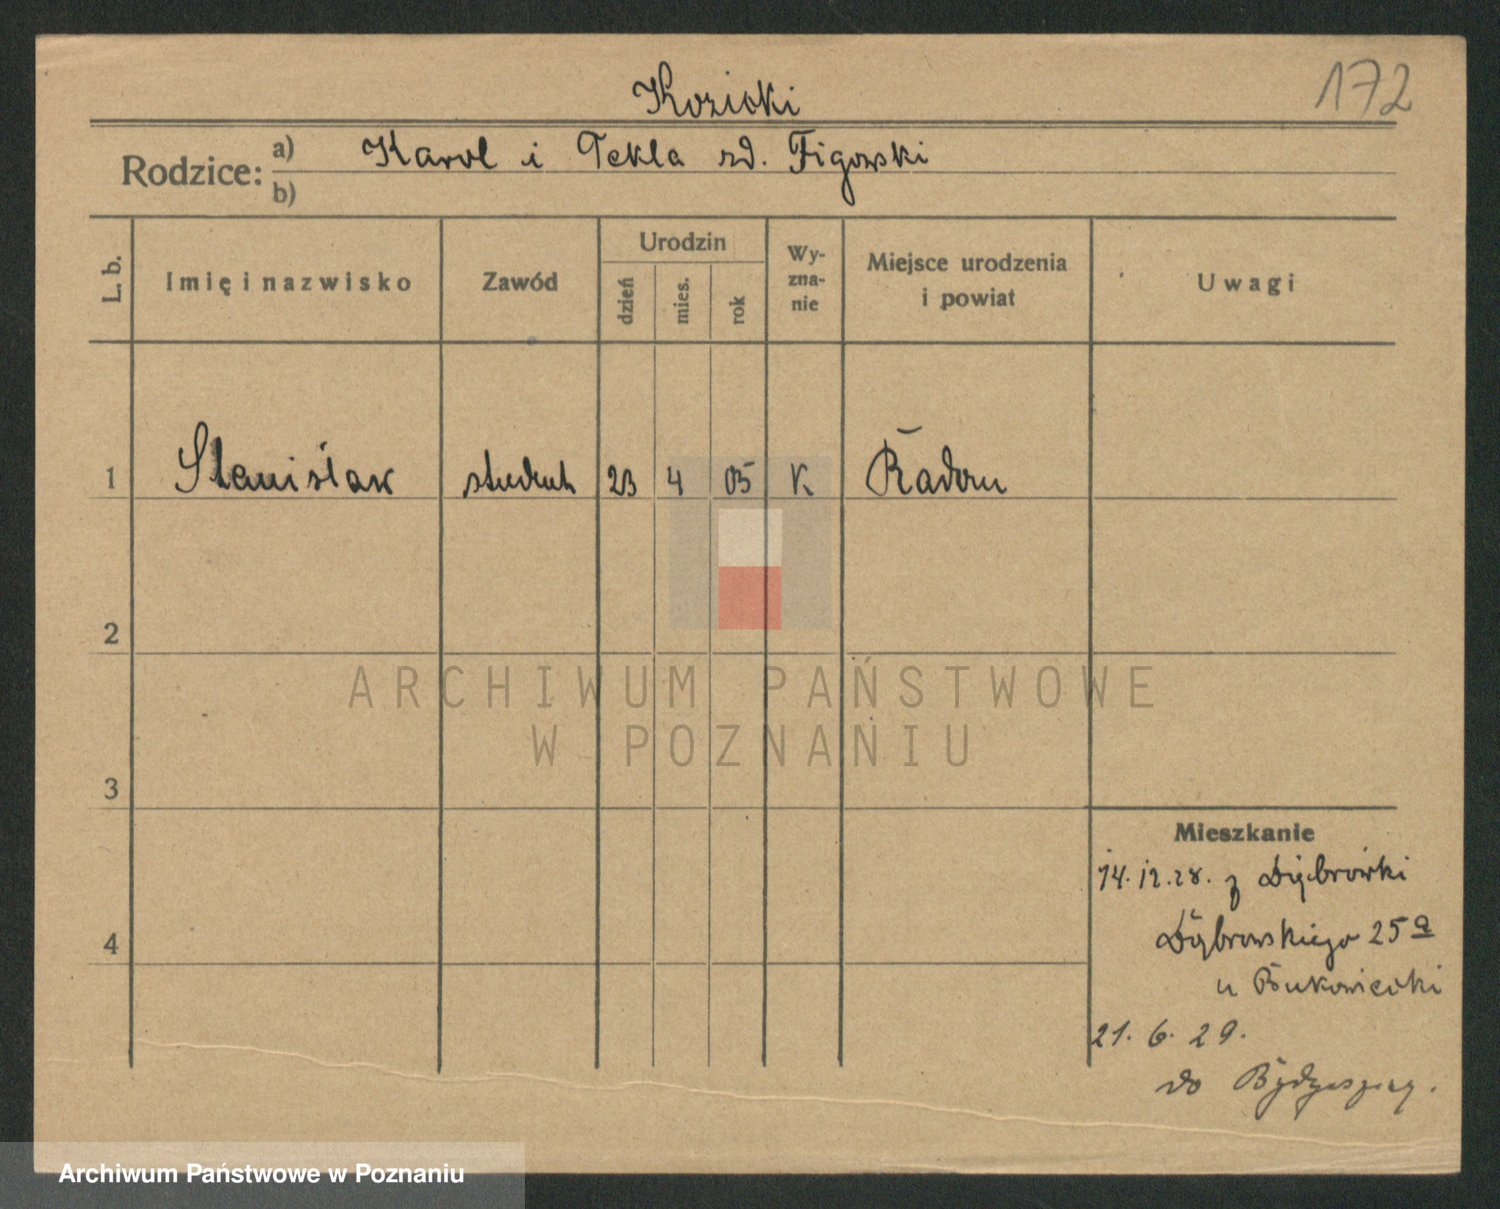 172
Kozicki
Rodzice: a) Karol i Tekla zd. Figowski
b)
L. b. Imię i nazwisko Zawód Urodzin dzień mies. rok Wy-zna-nie Miejsce urodzenia i powiat Uwagi
1 Stanisław student 23 4 05 K Radom
2
ARCHIWUM PAŃSTWOWE
W POZNANIU
3
Mieszkanie
14.12.28. z Dąbrówki
4
Dąbrowskiego 25a
u Bukowiecki
21. 6. 29.
do Bydgoszczy.
Archiwum Państwowe w Poznaniu